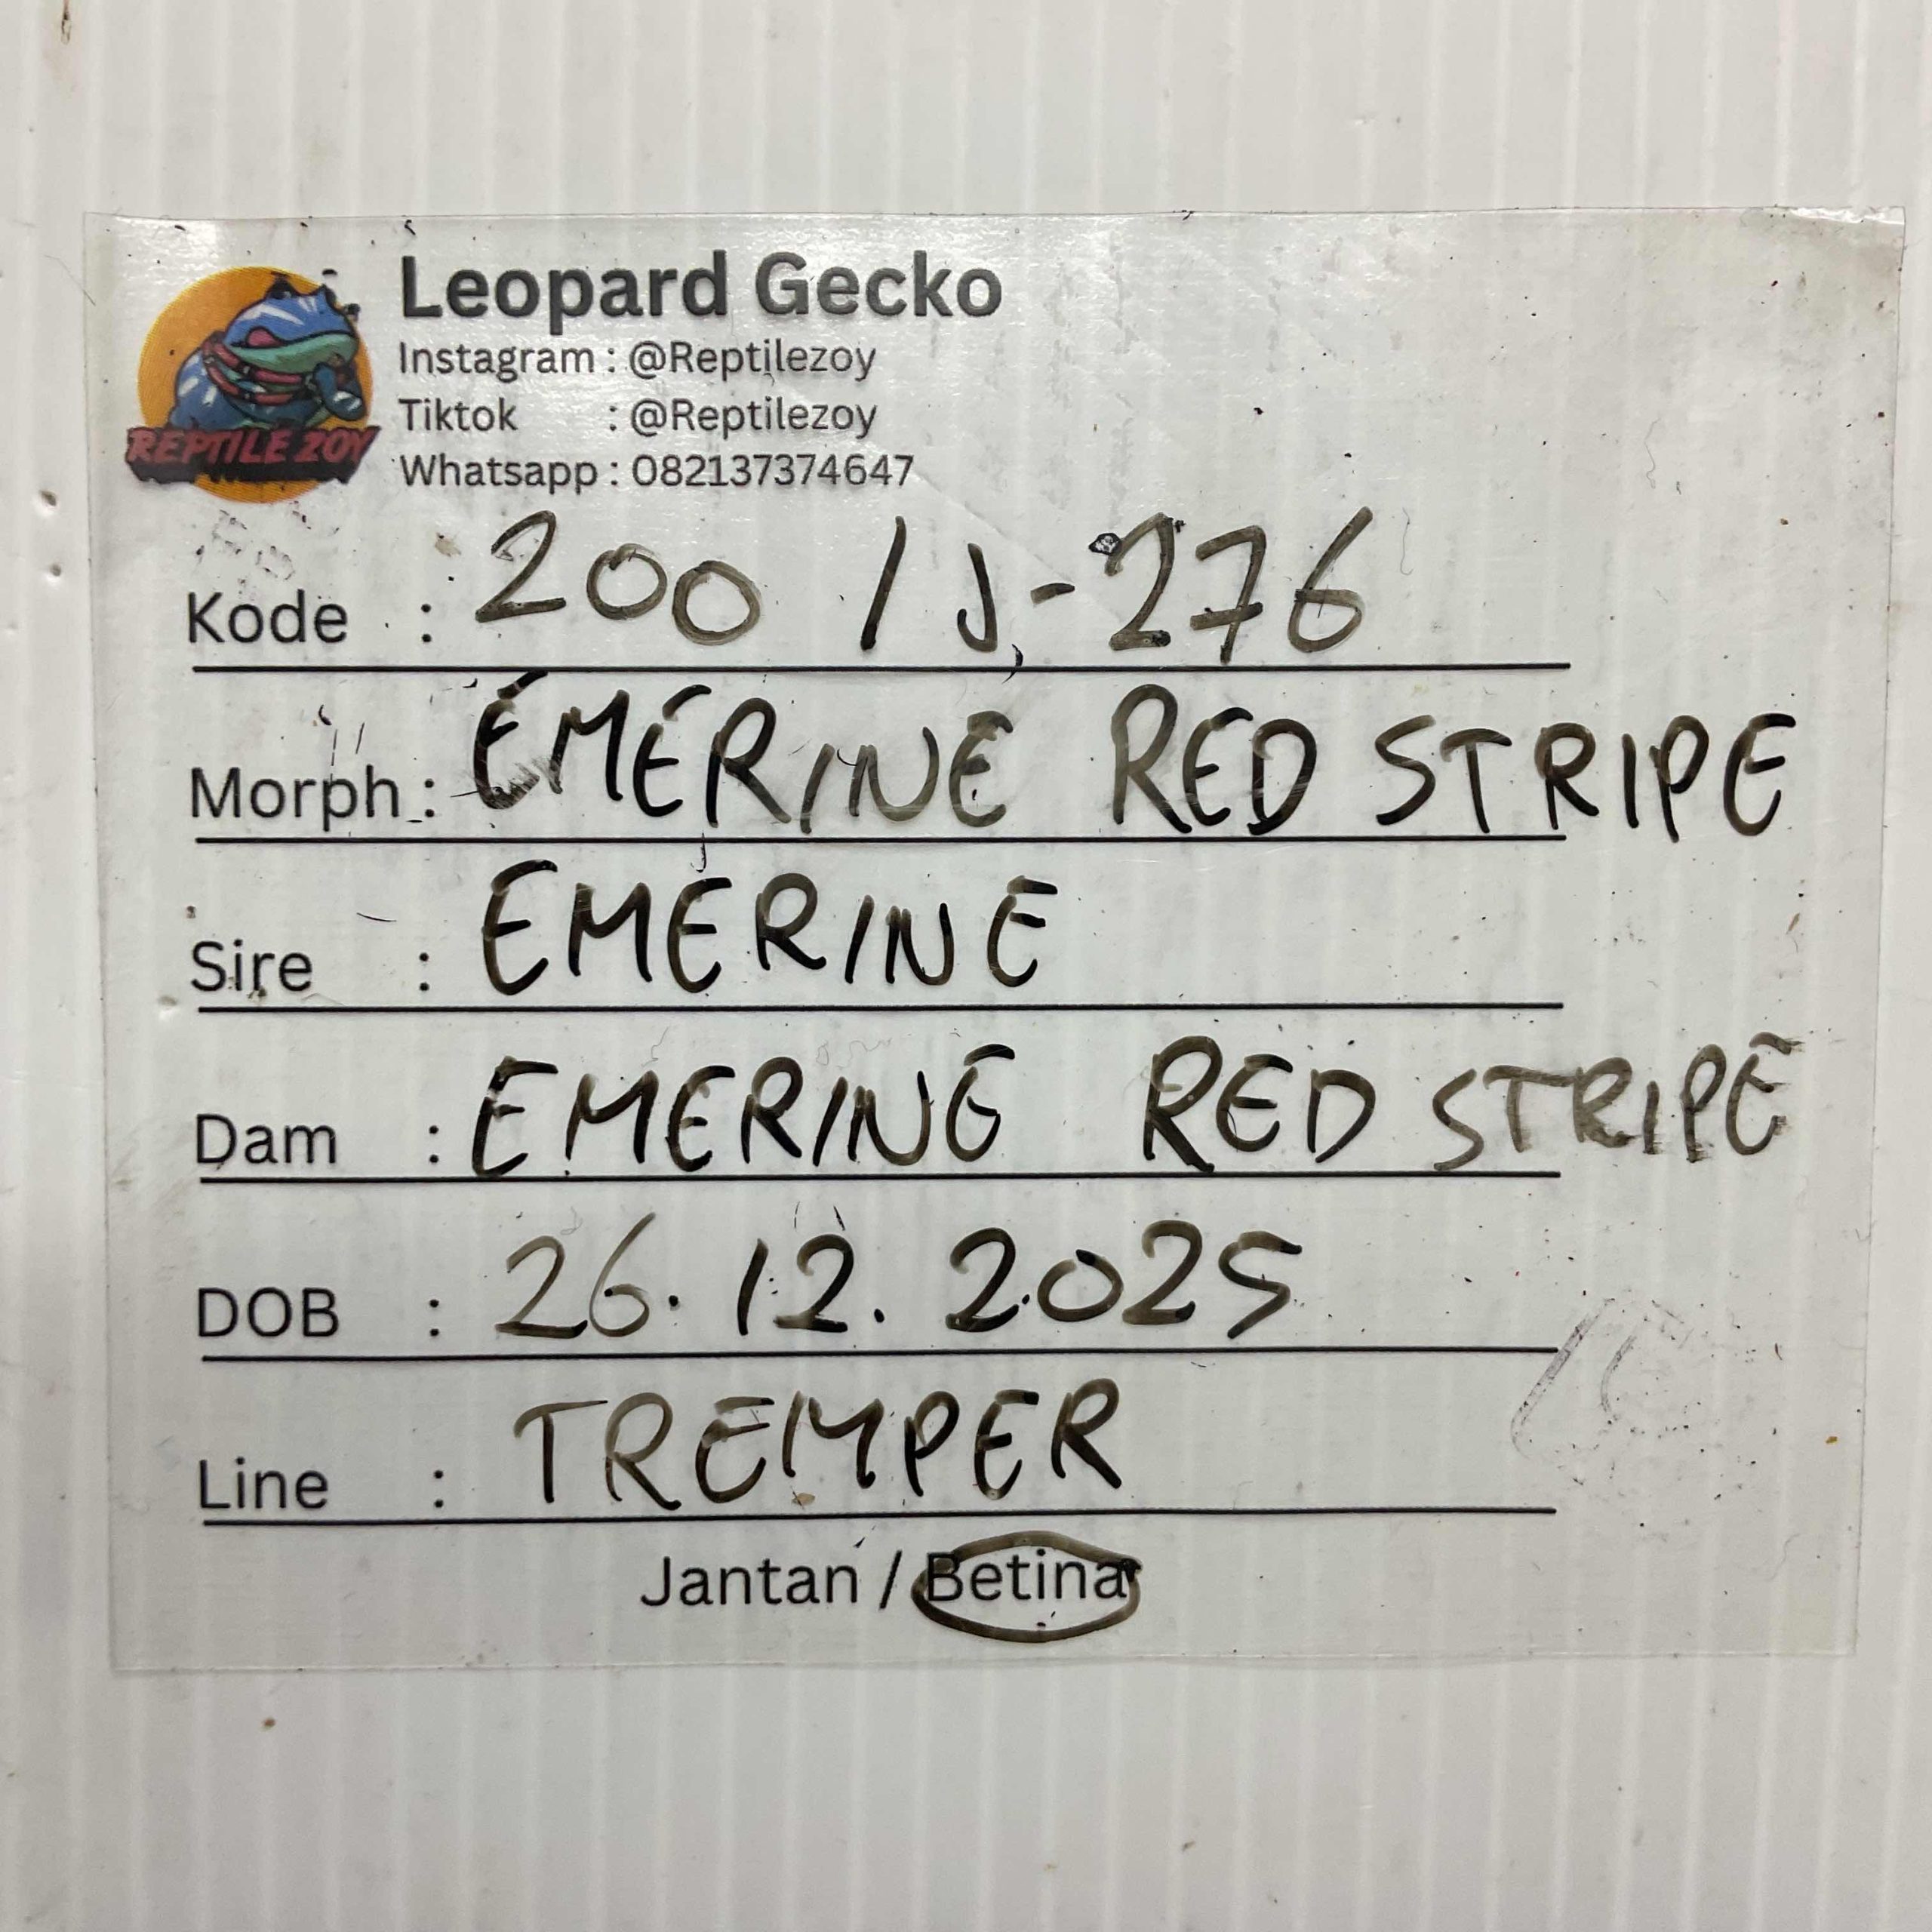 Leopard Gecko
Instagram : @Reptilezoy
Tiktok : @Reptilezoy
Whatsapp : 082137374647
REPTILE ZOY
Kode : 200 / J-276
Morph : EMERINE RED STRIPE
Sire : EMERINE
Dam : EMERINE RED STRIPE
DOB : 26.12.2025
Line : TREMPER
Jantan / Betina